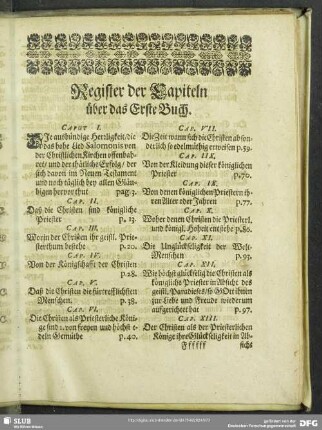 Register der Capiteln
über das Erste Buch.
CAPUT I.
Die ausbündige Herrligkeit, die
das hohe Lied Salomonis von
der Christlichen Kirchen offenbah-
ret/ und der thätliche Erfolg/ der
sich davon im Neuen Testament
und noch täglich bey allen Gläu-
bigen hervor thut pag. 1.
CAP. II.
Daß die Christen sind königliche
Priester p. 13.
CAP. III.
Worin der Christen ihr geistl. Prie-
sterthum bestehe p. 20.
CAP. IV.
Von der Königschafft der Christen
p. 28.
CAP. V.
Daß die Christen die fürtrefflichsten
Menschen. p. 38.
CAP. VI.
Die Christen als Priesterliche Köni-
ge sind von freyen und höchst e-
deln Gemüthe p. 40.
CAP. VII.
Die Zeit wann sich die Christen abson-
derlich so edelmüthig erweisen p. 59.
CAP. IIX.
Von der Kleidung dieser königlichen
Priester p. 70.
CAP. IX.
Von denen königlichen Priestern ih-
ren Alter oder Jahren p. 77.
CAP. X.
Woher denen Christen die Priesterl.
und königl. Hoheit entstehe p. 80.
CAP. XI.
Die Unglückseligkeit der Welt-
Menschen p. 93.
CAP. XII.
Wie höchst glückselig die Christen als
königliche Priester in Absicht des
geistl. Paradieses/ so GOtt ihnen
zur Liebe und Freude wieder um
auffgerichtet hat p. 97.
CAP. XIII.
Der Christen als der Priesterlichen
Könige ihre Glückseligkeit in Ab-
Ffffff sicht
SLUB
DFG